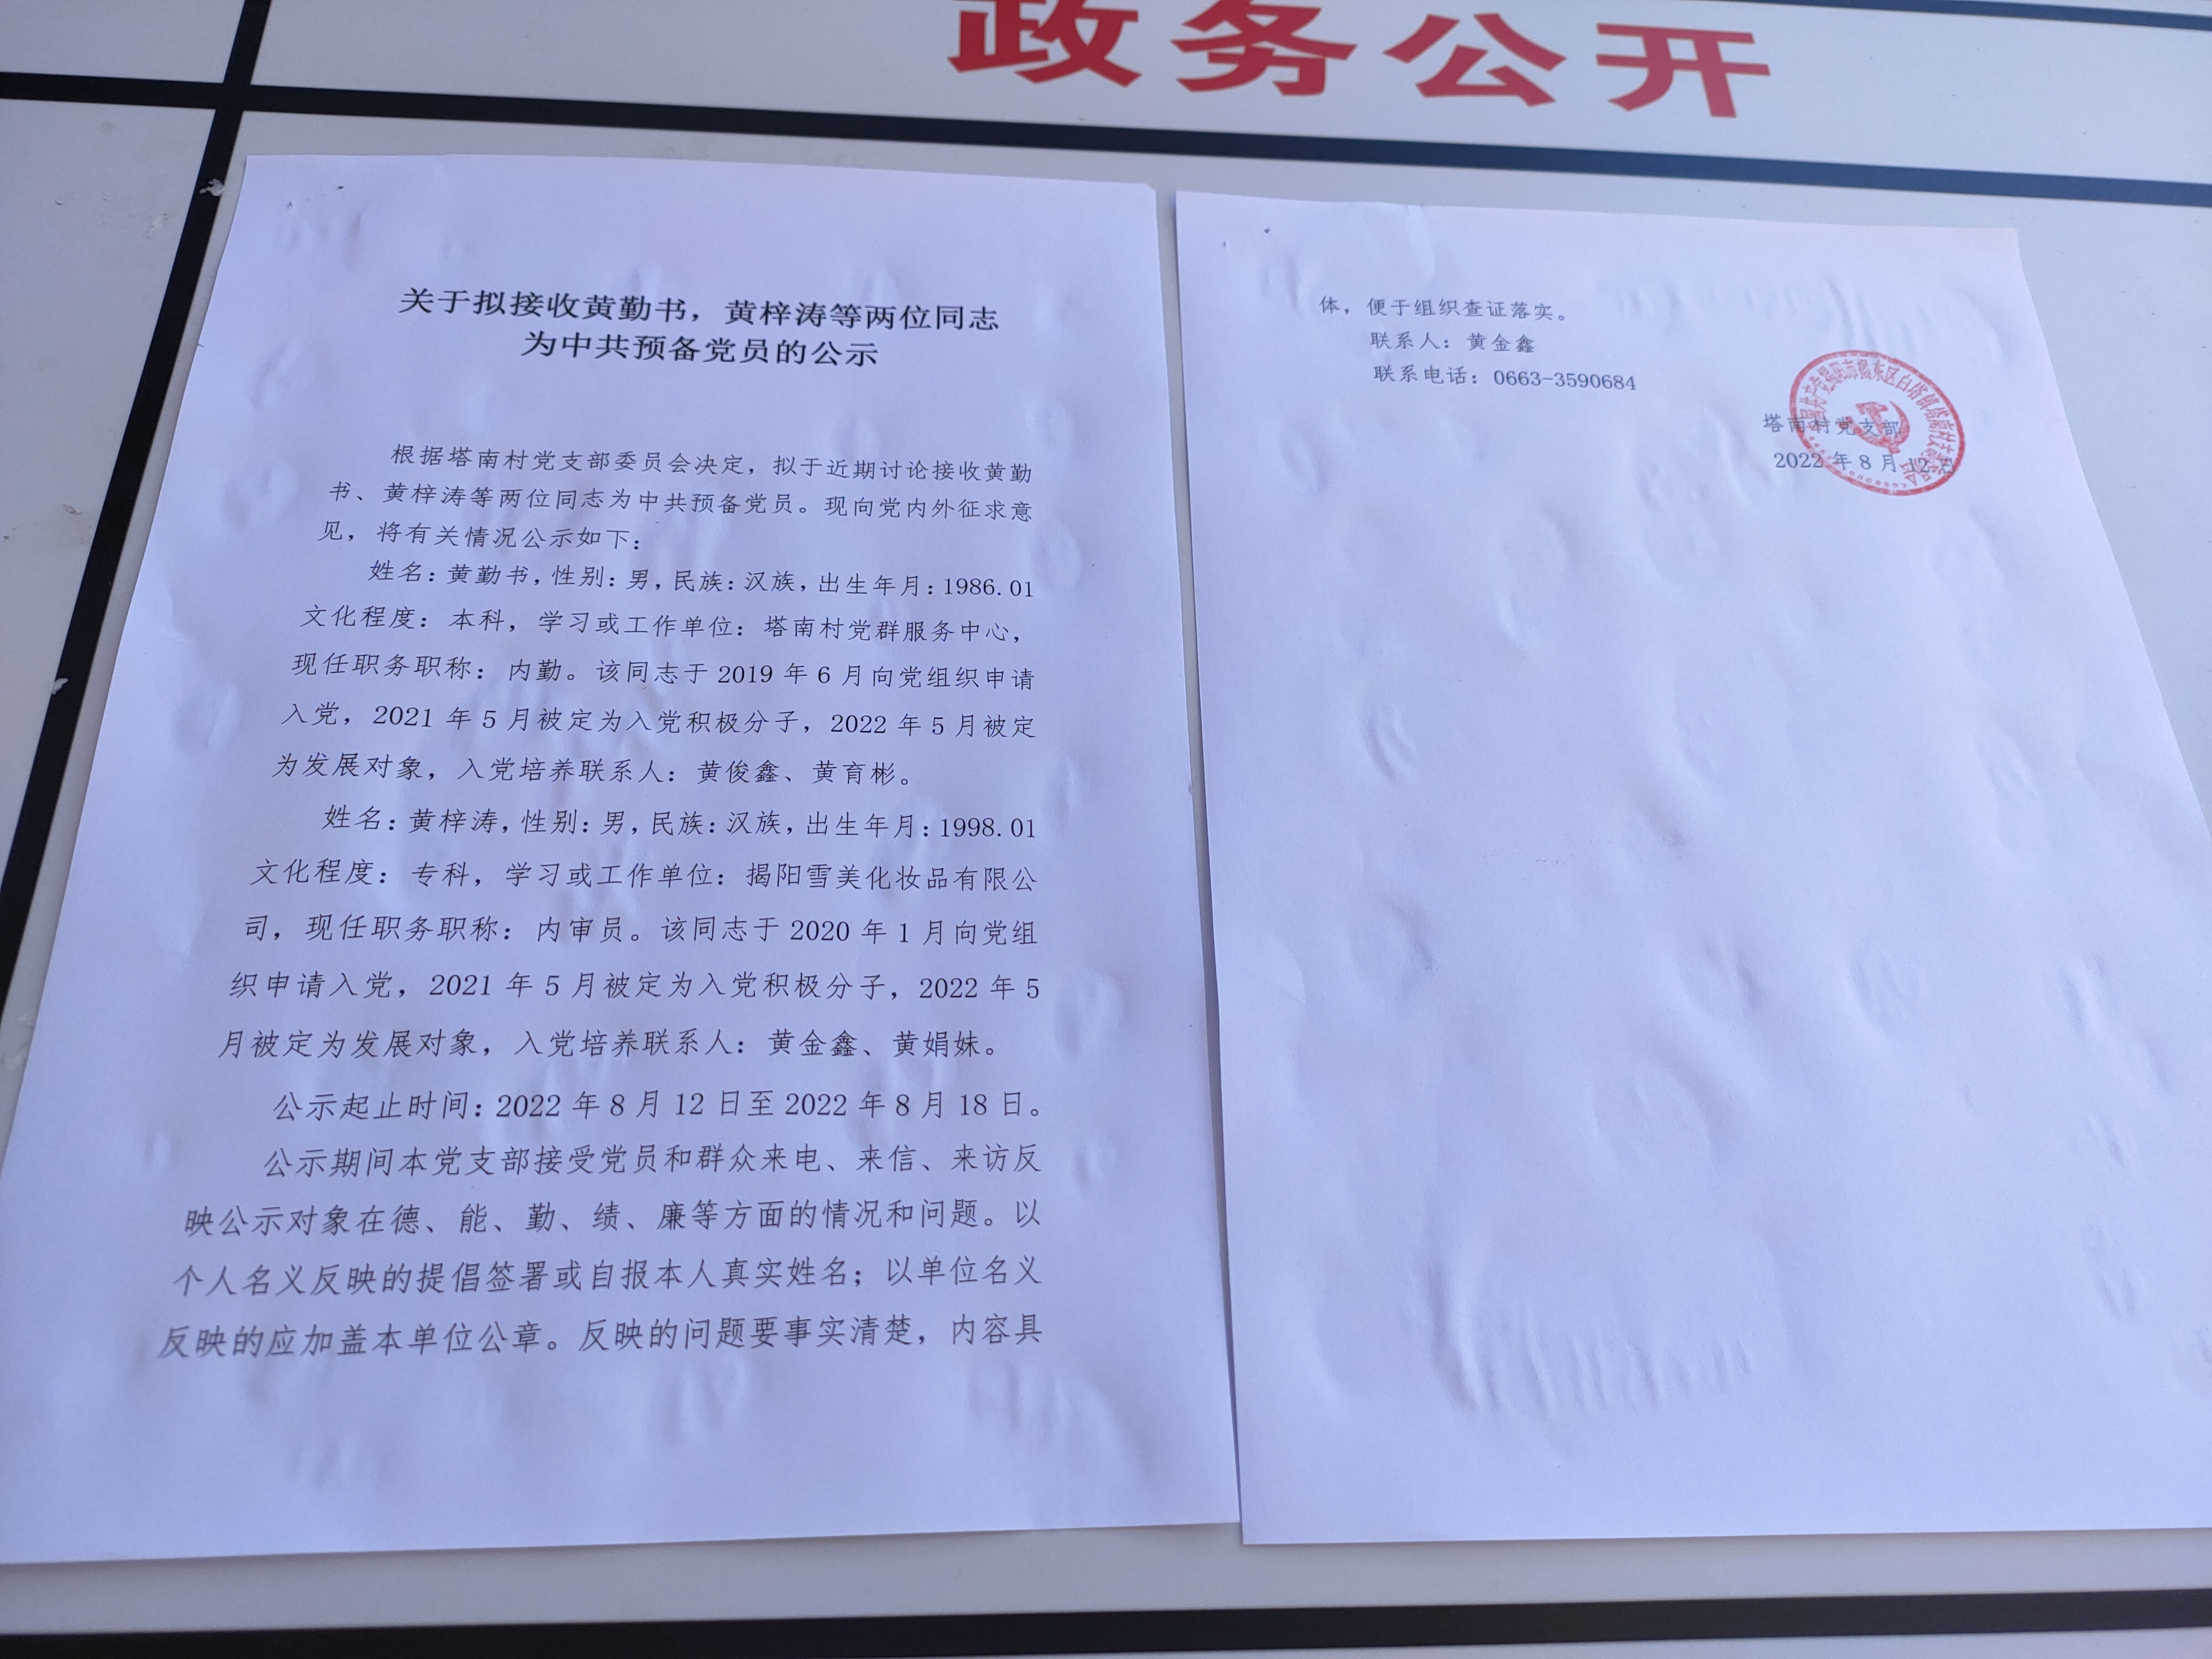 政务公开
关于拟接收黄勤书，黄梓涛等两位同志
为中共预备党员的公示
根据塔南村党支部委员会决定，拟于近期讨论接收黄勤
书、黄梓涛等两位同志为中共预备党员。现向党内外征求意
见，将有关情况公示如下：
姓名：黄勤书，性别：男，民族：汉族，出生年月：1986.01
文化程度：本科，学习或工作单位：塔南村党群服务中心，
现任职务职称：内勤。该同志于 2019 年 6 月向党组织申请
入党，2021 年 5 月被定为入党积极分子，2022 年 5 月被定
为发展对象，入党培养联系人：黄俊鑫、黄育彬。
姓名：黄梓涛，性别：男，民族：汉族，出生年月：1998.01
文化程度：专科，学习或工作单位：揭阳雪美化妆品有限公
司，现任职务职称：内审员。该同志于 2020 年 1 月向党组
织申请入党，2021 年 5 月被定为入党积极分子，2022 年 5
月被定为发展对象，入党培养联系人：黄金鑫、黄娟妹。
公示起止时间：2022 年 8 月 12 日至 2022 年 8 月 18 日。
公示期间本党支部接受党员和群众来电、来信、来访反
映公示对象在德、能、勤、绩、廉等方面的情况和问题。以
个人名义反映的提倡签署或自报本人真实姓名；以单位名义
反映的应加盖本单位公章。反映的问题要事实清楚，内容具
体，便于组织查证落实。
联系人：黄金鑫
联系电话：0663-3590684
塔南村党支部
2022 年 8 月 12 日